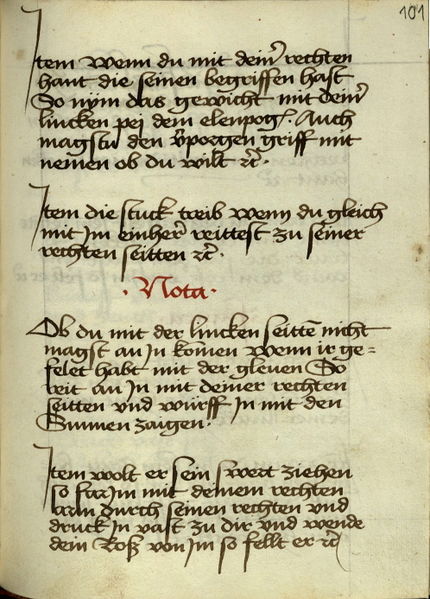 101
Item wenn du mit dein̄ rechten
hant die seinen begriffen hast
So nym das gewicht mit dein̄
lincken pej dem elenpog. Auch
magstu den v̄porgen griff mit
nemen ob du wilt ꝛc̄ ·
Item die stuck treib wenn du gleich
mit Im einher̄ reittest zu seiner
rechten seitten ꝛc̄ ·
· Nota ·
Ob du mit der lincken seittē nicht
magst an In komen wenn ir ge=
felet habt mit der gleuen So
reit an In mit deiner rechten
seitten vnd würff In mit den
Sunnen zaigen ·
Item wolt er sein swert ziehen
so far Im mit deinem rechten
arm durch seinen rechten vnd
druck In vast zu dir vnd wende
dein Roß von Im so fellt er ꝛc̄